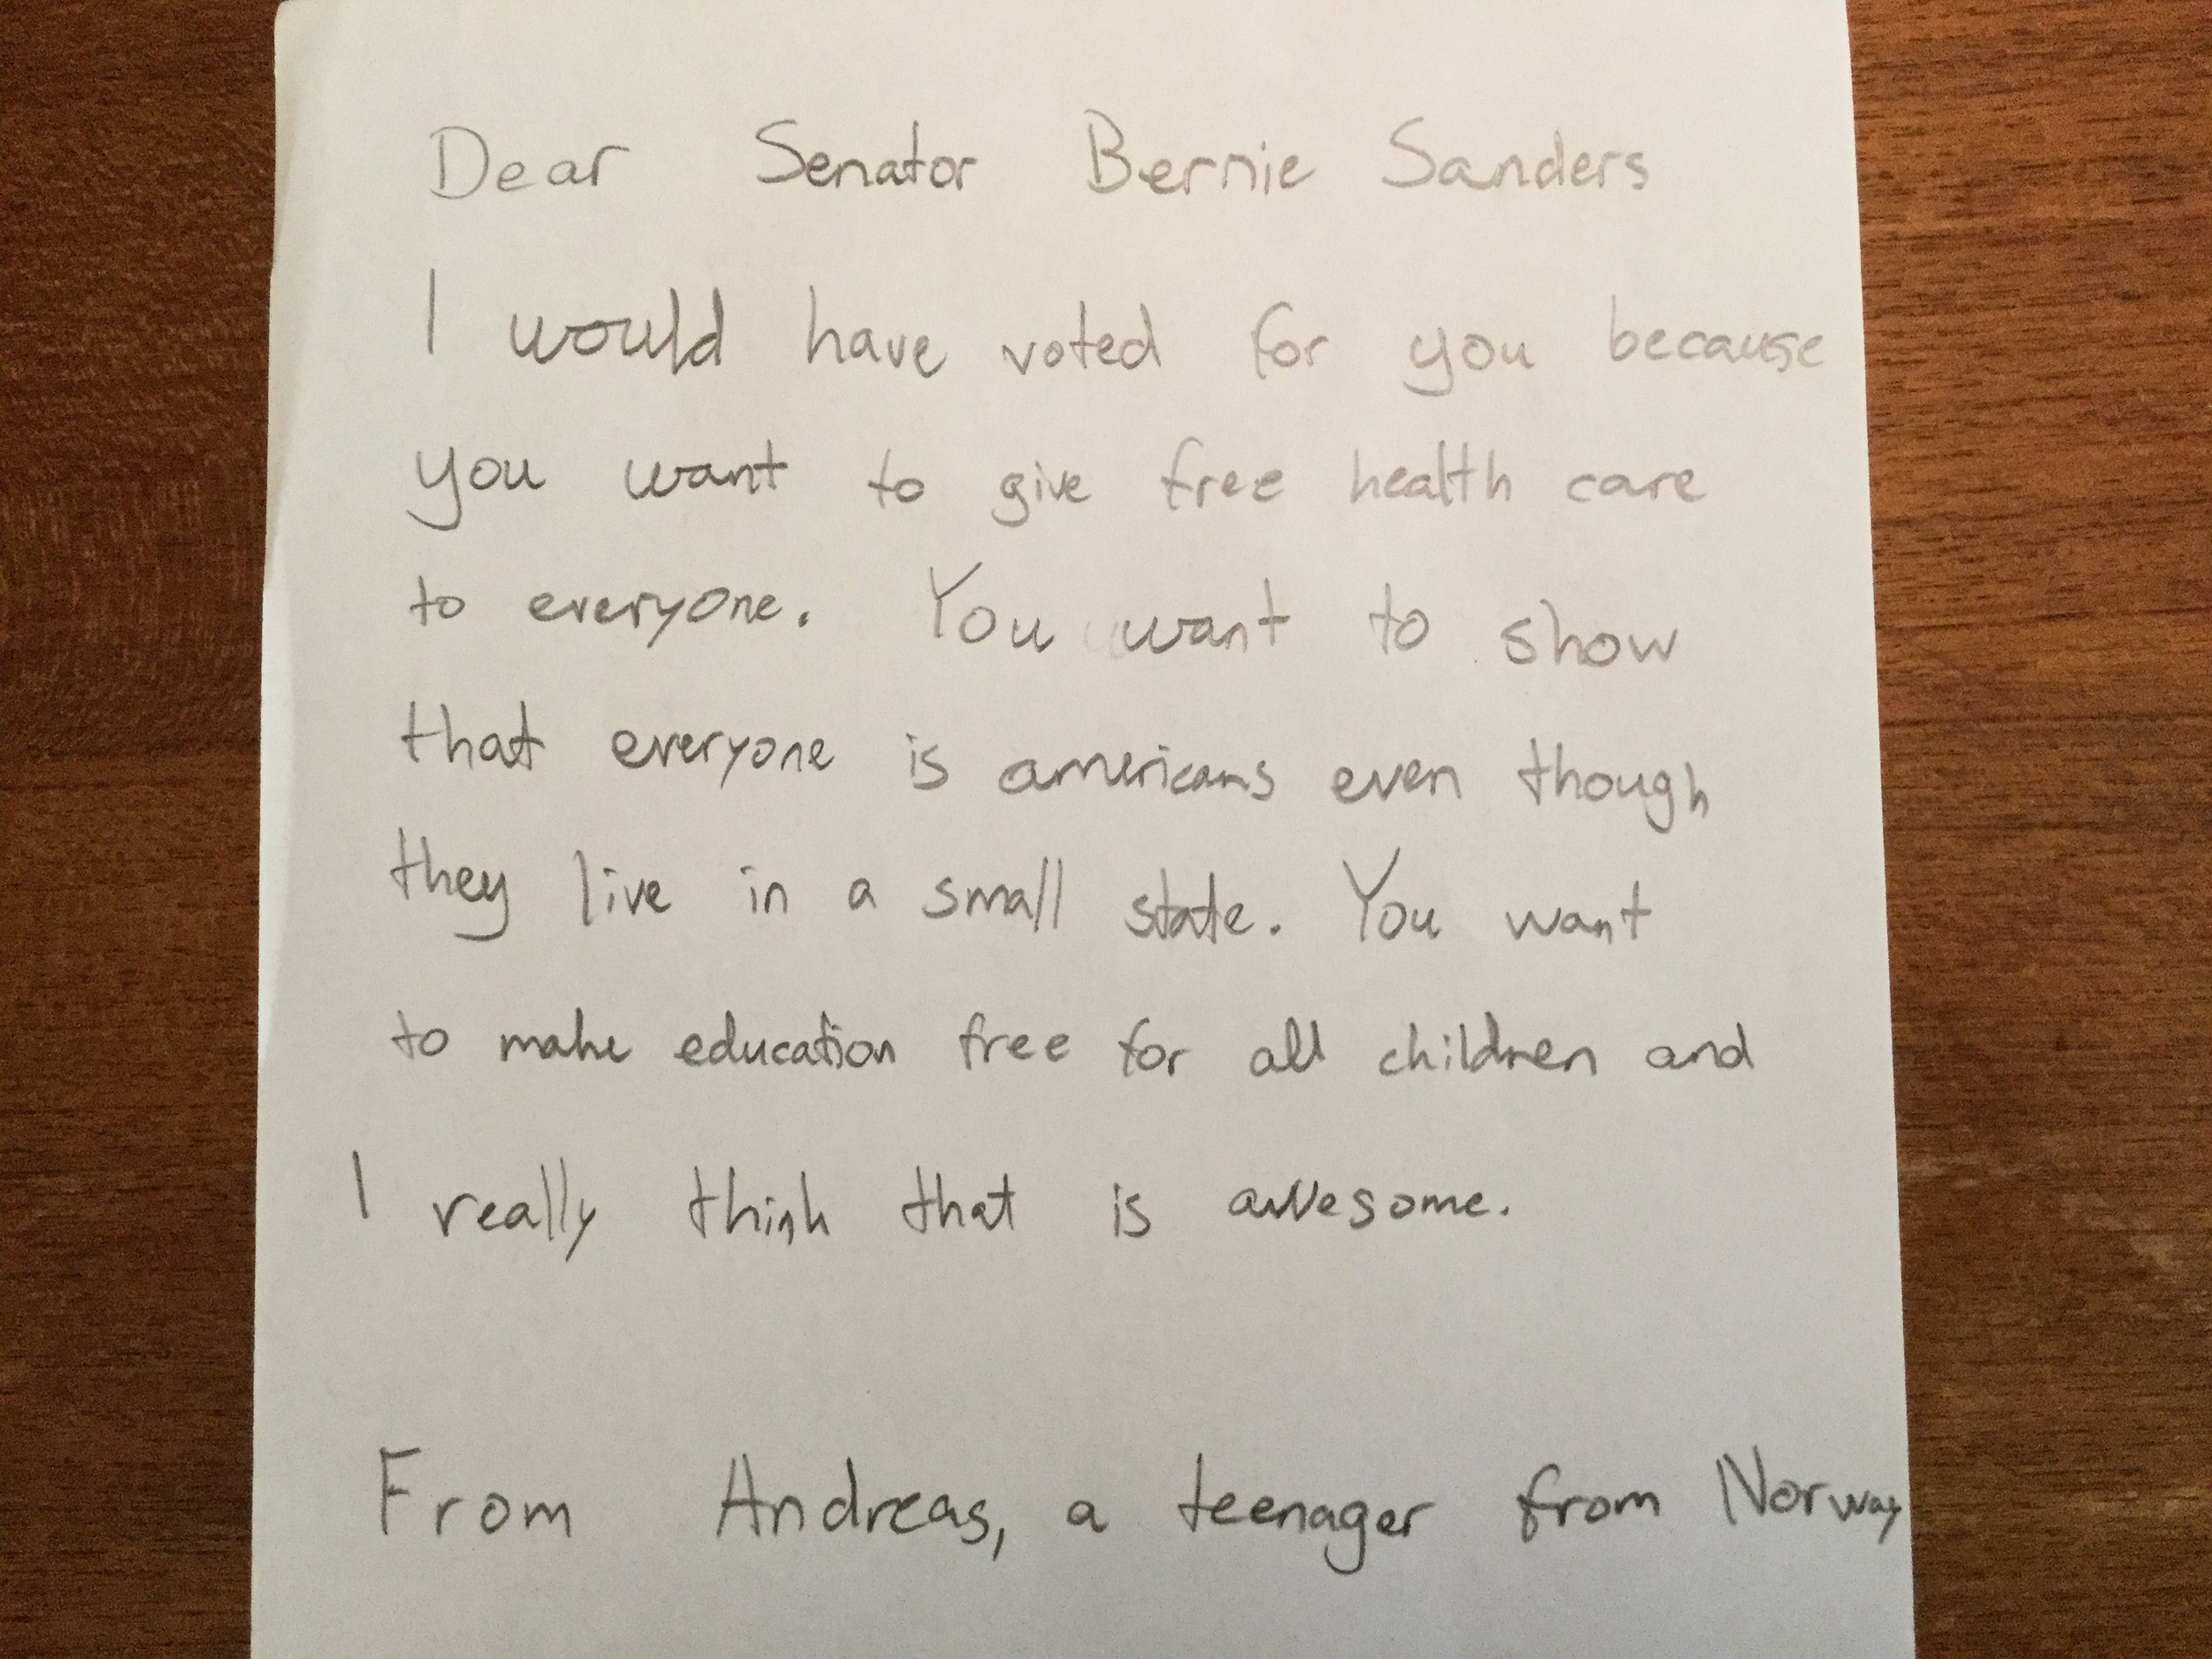 Dear Senator Bernie Sanders
I would have voted for you because
you want to give free health care
to everyone. You want to show
that everyone is americans even though
they live in a small state. You want
to make education free for all children and
I really think that is awesome.
From Andreas, a teenager from Norway